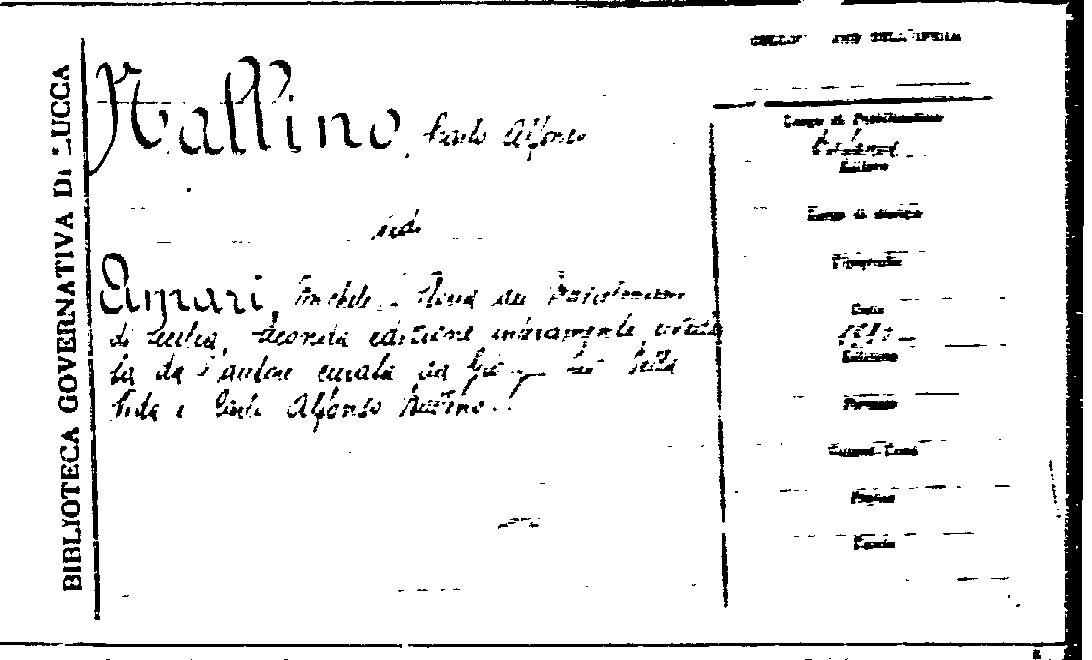 BIBLIOTECA GOVERNATIVA DI LUCCA
Nallino, Carlo Alfonso
ved.
Amari, Michele. Storia dei Musulmani
di Sicilia, seconda edizione interamente
da l'autore curata da
Vida e Carlo Alfonso Nallino.
COLLOC DELL'OPERA
Luogo di Pubblicazione
Catania
Editore
Luogo di stampa
Tipografia
Data
Edizione
Formato
Pagine
Tavole